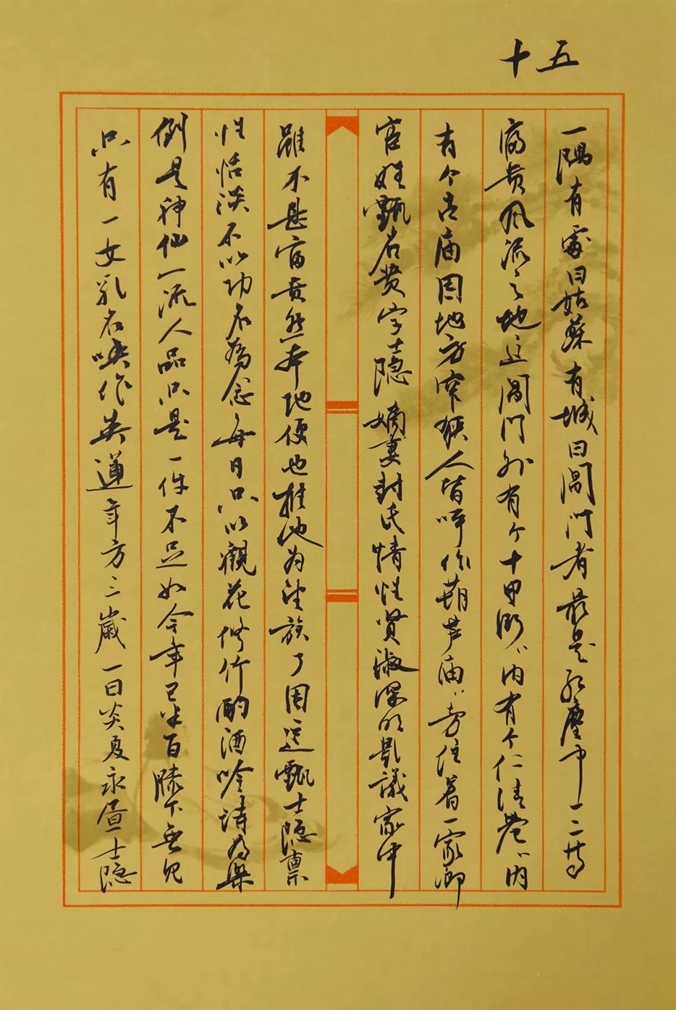 十五
一隅有處曰姑蘇有城曰閶門者最是紅塵中一二等
富贵風流之地这閶门外有个十里街〻内有个仁清巷〻内
有个古庙因地方窄狹人皆呼作葫芦庙〻旁住着一家鄉
宦姓甄名费字士隐嫡妻封氏情性贤淑深明礼議家中
雖不甚富贵然本地便也推他为望族了因這甄士隐禀
性恬淡不以功名為念每日只以觀花修竹酌酒吟詩为樂
倒是神仙一流人品只是一件不足如今年已半百膝下無兒
只有一女乳名唤作英蓮年方三歲一日炎夏永晝士隐